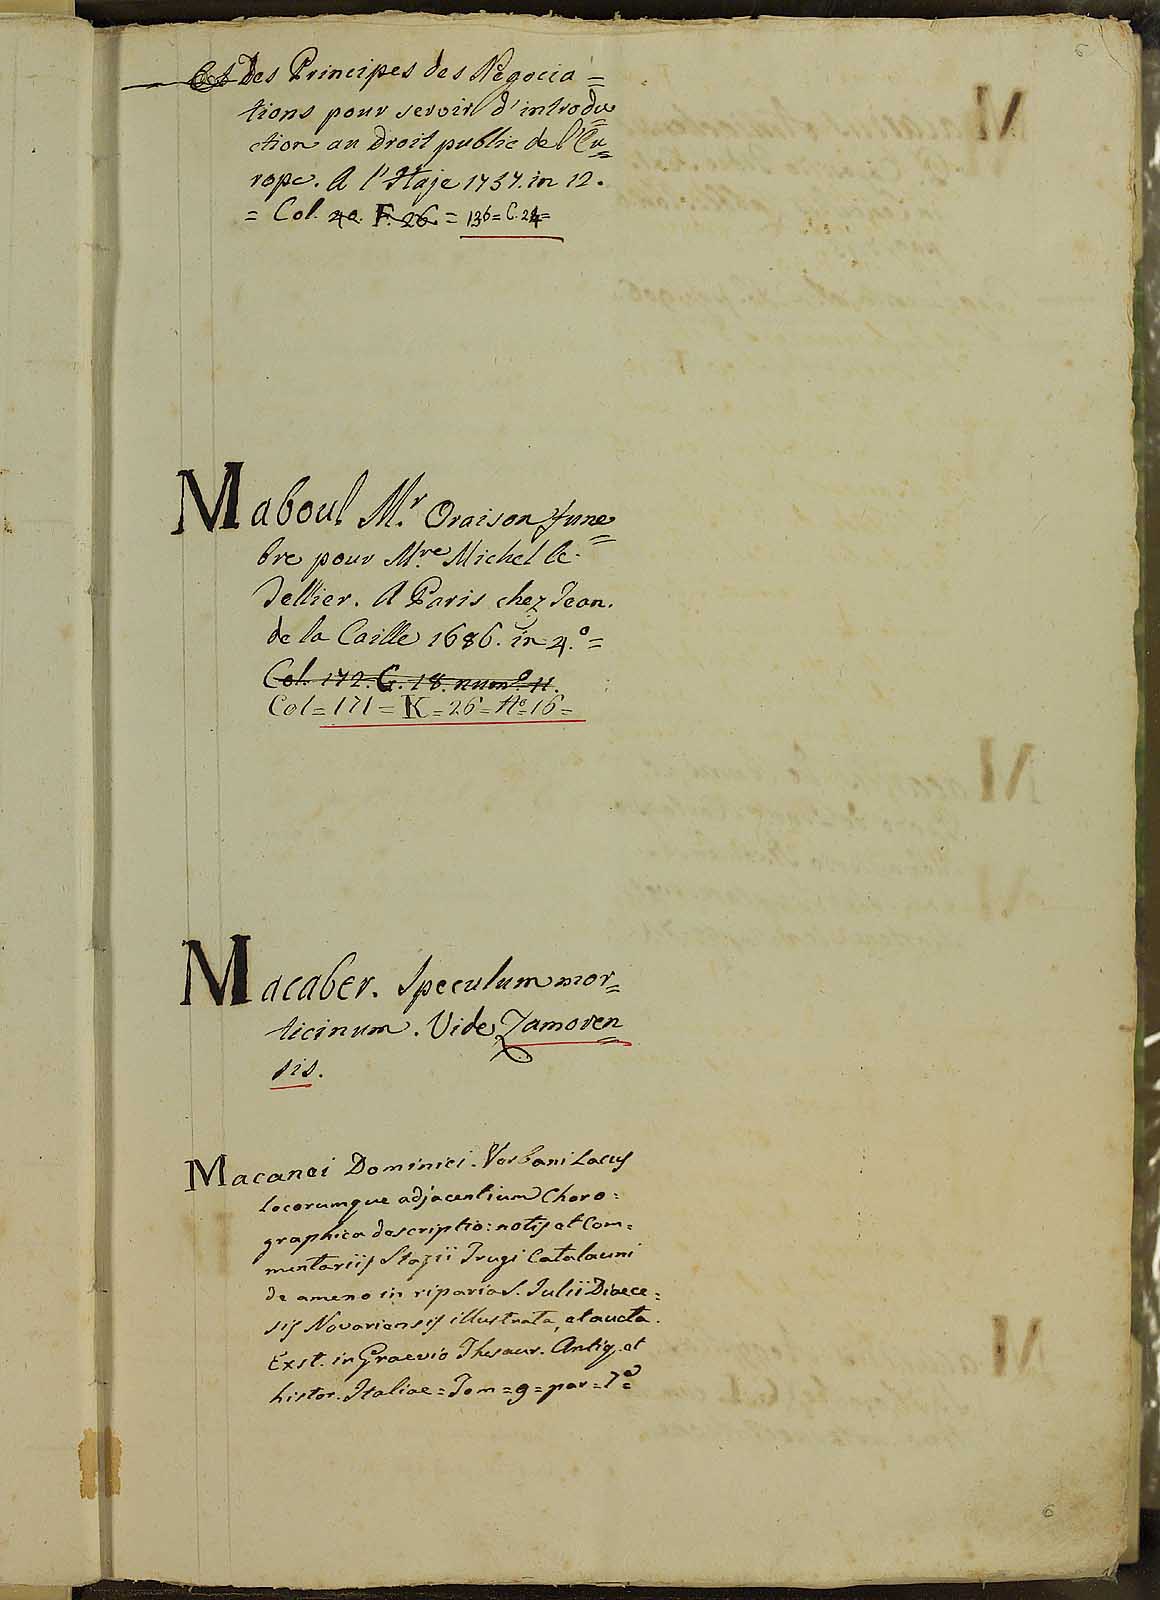 6
Des Principes des Négocia=
tions pour servir d'introdu=
ction au Droit public de l'Eu=
rope. A l'Haje 1757. in 12.
= Col. 40. F. 26. = 136 = C. 24 =
Maboul Mr. Oraison fune=
bre pour Mre. Michel le
Tellier. A Paris chez Jean.
de la Caille 1686. in 4.° =
Col. 172. G. 18. num.° 11.
Col = 171 = K = 26 = N° = 16 =
Macaber. Speculum mor=
ticinum. Vide Zamoren=
sis.
Macanei Dominici. Verbani Lacus
locorumque adjacentium Choro=
graphica descriptio: notis et Com=
mentariis Stazii Trugi Catalauni
de ameno in riparia S. Julii Dioece=
sis Novariensis illustrata, et aucta.
Exst. in Graevio Thesaur. Antiq. et
histor. Italiae = Tom = 9 = par = 7a =
6